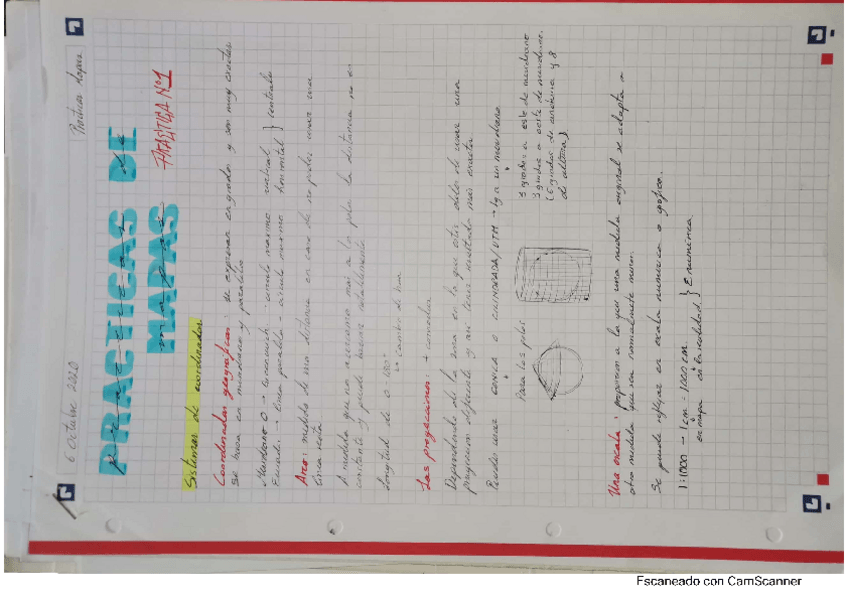 6 Octubre 2020
PRACTICAS DE
MAPAS
PRACTICA Nº1
Sistemas de coordenadas
Coordenadas geográficas: se expresan en grados y son muy exactas
se basa en meridiano y paralelo
Meridiano 0 → Greenwich - círculo máximo vertical
Ecuador → línea paralelo - círculo máximo horizontal } centrales
Arco: medida de una distancia en caso de no poder usar una
línea recta
A medida que nos acercamos más a los polos la distancia no es
constante y puede variar notablemente
Longitud de 0-180º
Las proyecciones: + comodas
Dependiendo de la zona en la que estes debes de usar una
proyeccion diferente y asi tener resultado más exacto
Puedes usar CONICA o CILINDRADA/UTM → tg a un meridiano
Para los polos
3 grados a este de meridiano
3 grados a oeste de meridiano
(6 grados de anchura y 8
de altura)
Una escala: proporcion a la que una medida original se adapta a
otra medida que sea normalmente menor.
Se puede reflejar en escala numerica o gráfica.
1:1000 → 1cm = 1000 cm } E numérica
en mapa en la realidad
Escaneado con CamScanner